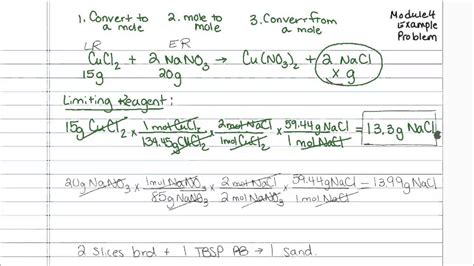 1. Convert to a mole 2. mole to mole 3. Convert from a mole
Module 4 Example Problem
LR ER
CuCl₂ + 2 NaNO₃ → Cu(NO₃)₂ + 2 NaCl
15g 20g x g
Limiting Reagent:
15g CuCl₂ × 1 mol CuCl₂ / 134.45g CuCl₂ × 2 mol NaCl / 1 mol CuCl₂ × 59.44g NaCl / 1 mol NaCl = 13.3g NaCl
20g NaNO₃ × 1 mol NaNO₃ / 85g NaNO₃ × 2 mol NaCl / 2 mol NaNO₃ × 59.44g NaCl / 1 mol NaCl = 13.99g NaCl
2 slices brd + 1 TBSP PB → 1 sand.